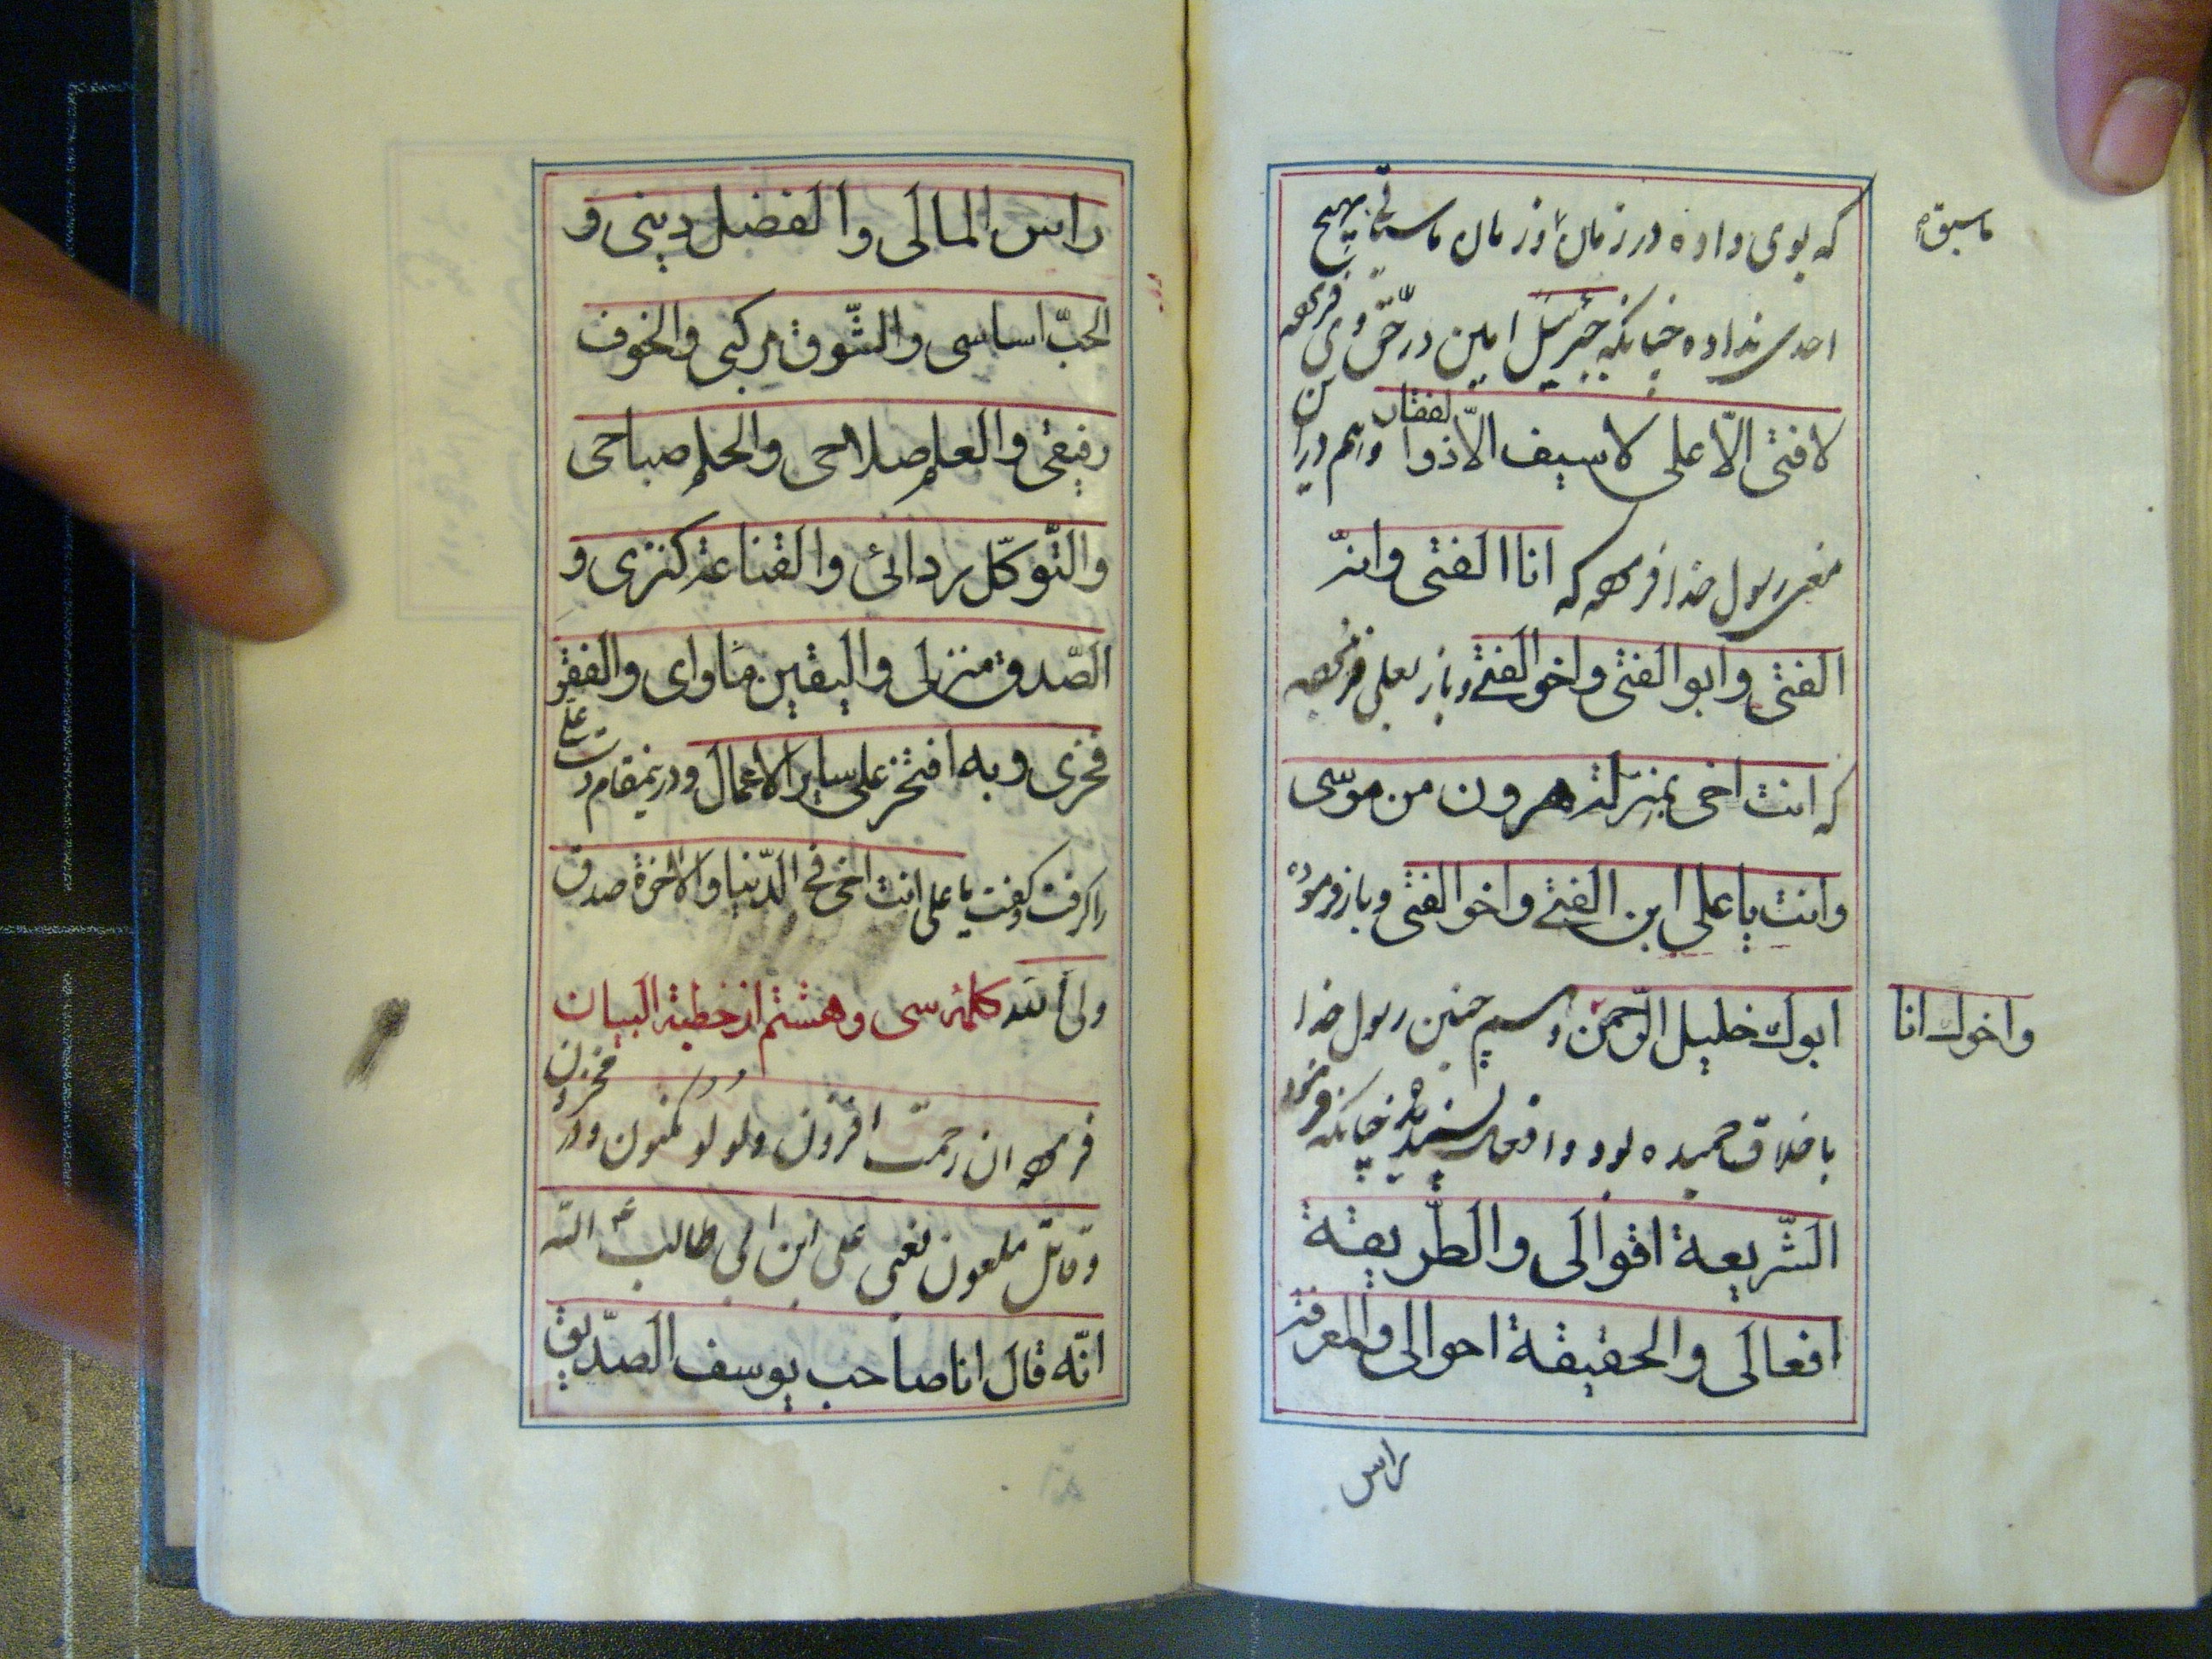 که بوی داده در زمان او ز مان ماسبق بهیچ
ماسبق
احدی نداده چنانکه جبرئیل امین در حق وی فرموده
لا فتی الّا علی لا سیف الّا ذوالفقار و هم در این
معنی رسول خدا فرموده که انا الفتی وابن
الفتی وابو الفتی واخو الفتی و باز بعلی فرموده
که انت اخی بمنزلة هرون من موسی
وانت یا علی ابن الفتی واخو الفتی و باز فرموده
ابوک خلیل الرّحمن
واخوک انا
و سیم چنین رسول خدا
باخلاق حمیده بود و افعال پسندیده چنانکه فرموده
الشّریعة اقوالی والطّریقة
افعالی والحقیقة احوالی والمعرفة
راس
راس المالی والفضل دینی و
الحبّ اساسی والشّوق مرکبی والخوف
رفیقی والعلم صلاحی والحلم صباحی
والتّوکّل ردائی والقناعة کنزی و
الصّدق منزلی والیقین مأوای والفقر
فخری و به افتخر علی سایر الاعمال و در اینمقام دست علی
را گرفت و گفت یا علی انت اخی فی الدّنیا والآخرة صدق
ولی الله کلمهٔ سی و هشتم از خطبة البیان
فرموده ان رحمت افزون و لولو مکنون و در مخزن
و قاتل ملعون یعنی علی ابن ابی طالب
انّه قال انا صاحب یوسف الصّدّیق